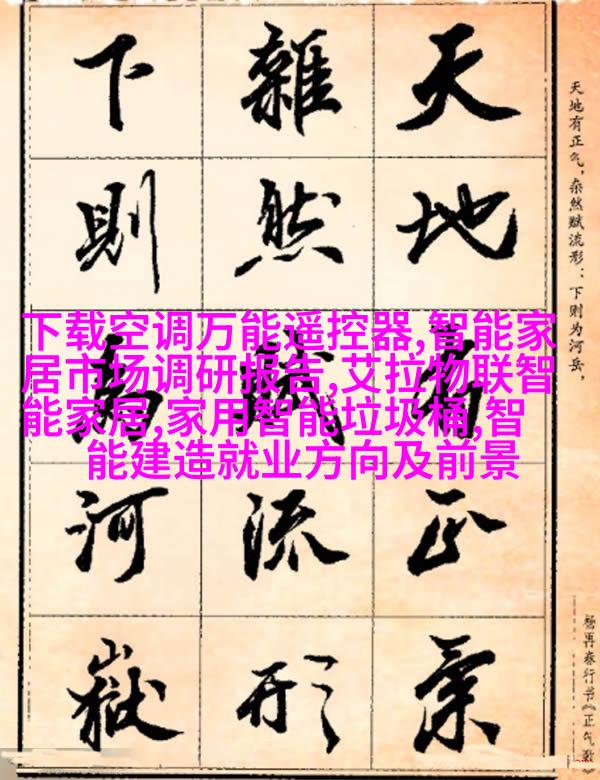 天地有正气，杂然赋流形：下则为河岳，
杨再春行书《正气歌》
天地有正氣
雜然賦流形
下則為河嶽
下载空调万能遥控器,智能家
居市场调研报告,艾拉物联智
能家居,家用智能垃圾桶,智
能建造就业方向及前景